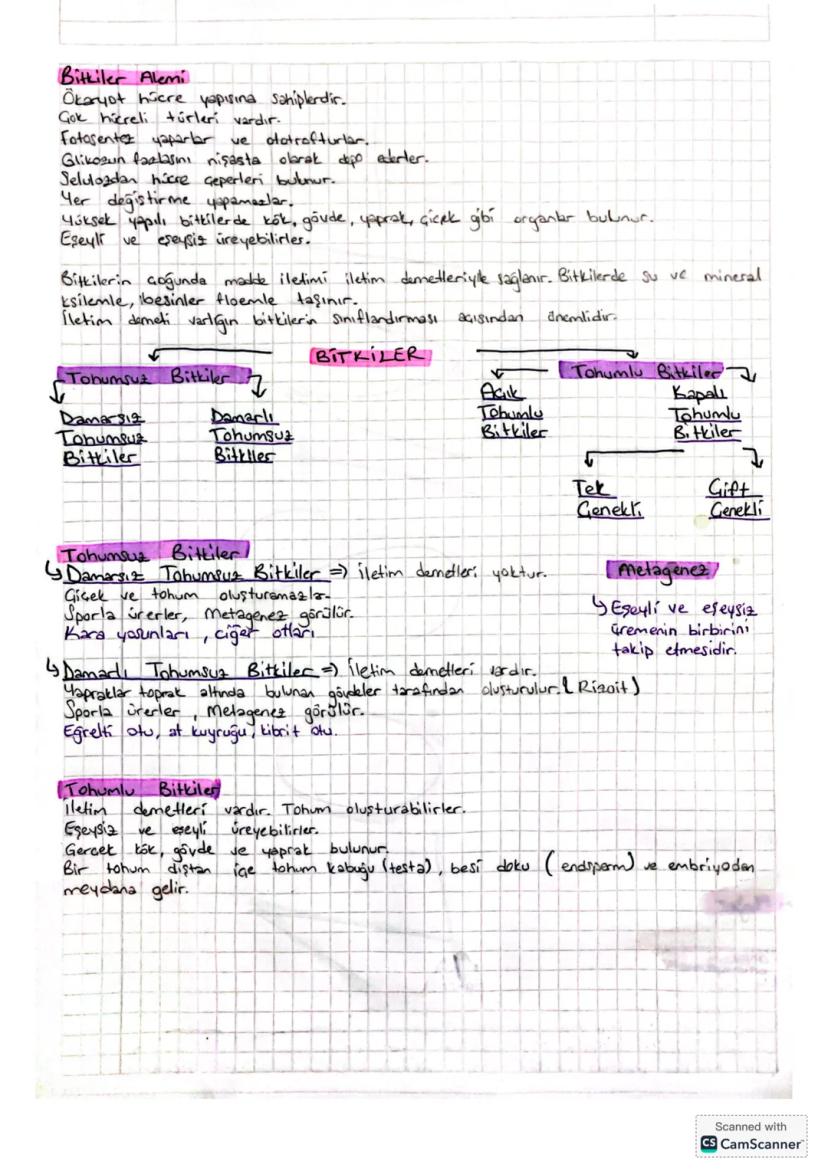 Bitkiler Alemi
Ökaryot hücre yapısına sahiplerdir.
Çok hücreli türleri vardır.
Fotosentez yaparlar ve ototrofturlar.
Glikozun fazlasını nişasta olarak depo ederler.
Selülozdan hücre çeperleri bulunur.
Yer değiştirme yapamazlar.
Yüksek yapılı bitkilerde kök, gövde, yaprak, çiçek gibi organlar bulunur.
Eşeyli ve eşeysiz üreyebilirler.
Bitkilerin çoğunda madde iletimi iletim demetleriyle sağlanır. Bitkilerde su ve mineral
ksilemle, besinler floemle taşınır.
İletim demeti varlığın bitkilerin sınıflandırması açısından önemlidir.
BİTKİLER
Tohumsuz Bitkiler
Tohumlu Bitkiler
Damarsız
Tohumsuz
Bitkiler
Damarlı
Tohumsuz
Bitkiler
Açık
Tohumlu
Bitkiler
Kapalı
Tohumlu
Bitkiler
Tek
Çenekli
Çift
Çenekli
Tohumsuz Bitkiler
Damarsız Tohumsuz Bitkiler => İletim demetleri yoktur.
Çiçek ve tohum oluşturamazlar.
Sporla ürerler, Metagenez görülür.
Kara yosunları, ciğer otları
Metagenez
Eşeyli ve eşeysiz
üremenin birbirini
takip etmesidir.
Damarlı Tohumsuz Bitkiler => İletim demetleri vardır.
Yapraklar toprak altında bulunan gövdeler tarafından oluşturulur. (Rizoit)
Sporla ürerler, Metagenez görülür.
Eğrelti otu, at kuyruğu, kibrit otu.
Tohumlu Bitkiler
İletim demetleri vardır. Tohum oluşturabilirler.
Eşeysiz ve eşeyli üreyebilirler.
Gerçek kök, gövde ve yaprak bulunur.
Bir tohum dıştan içe tohum kabuğu (testa), besi doku (endsperm) ve embriyodan
meydana gelir.
Scanned with
CS CamScanner